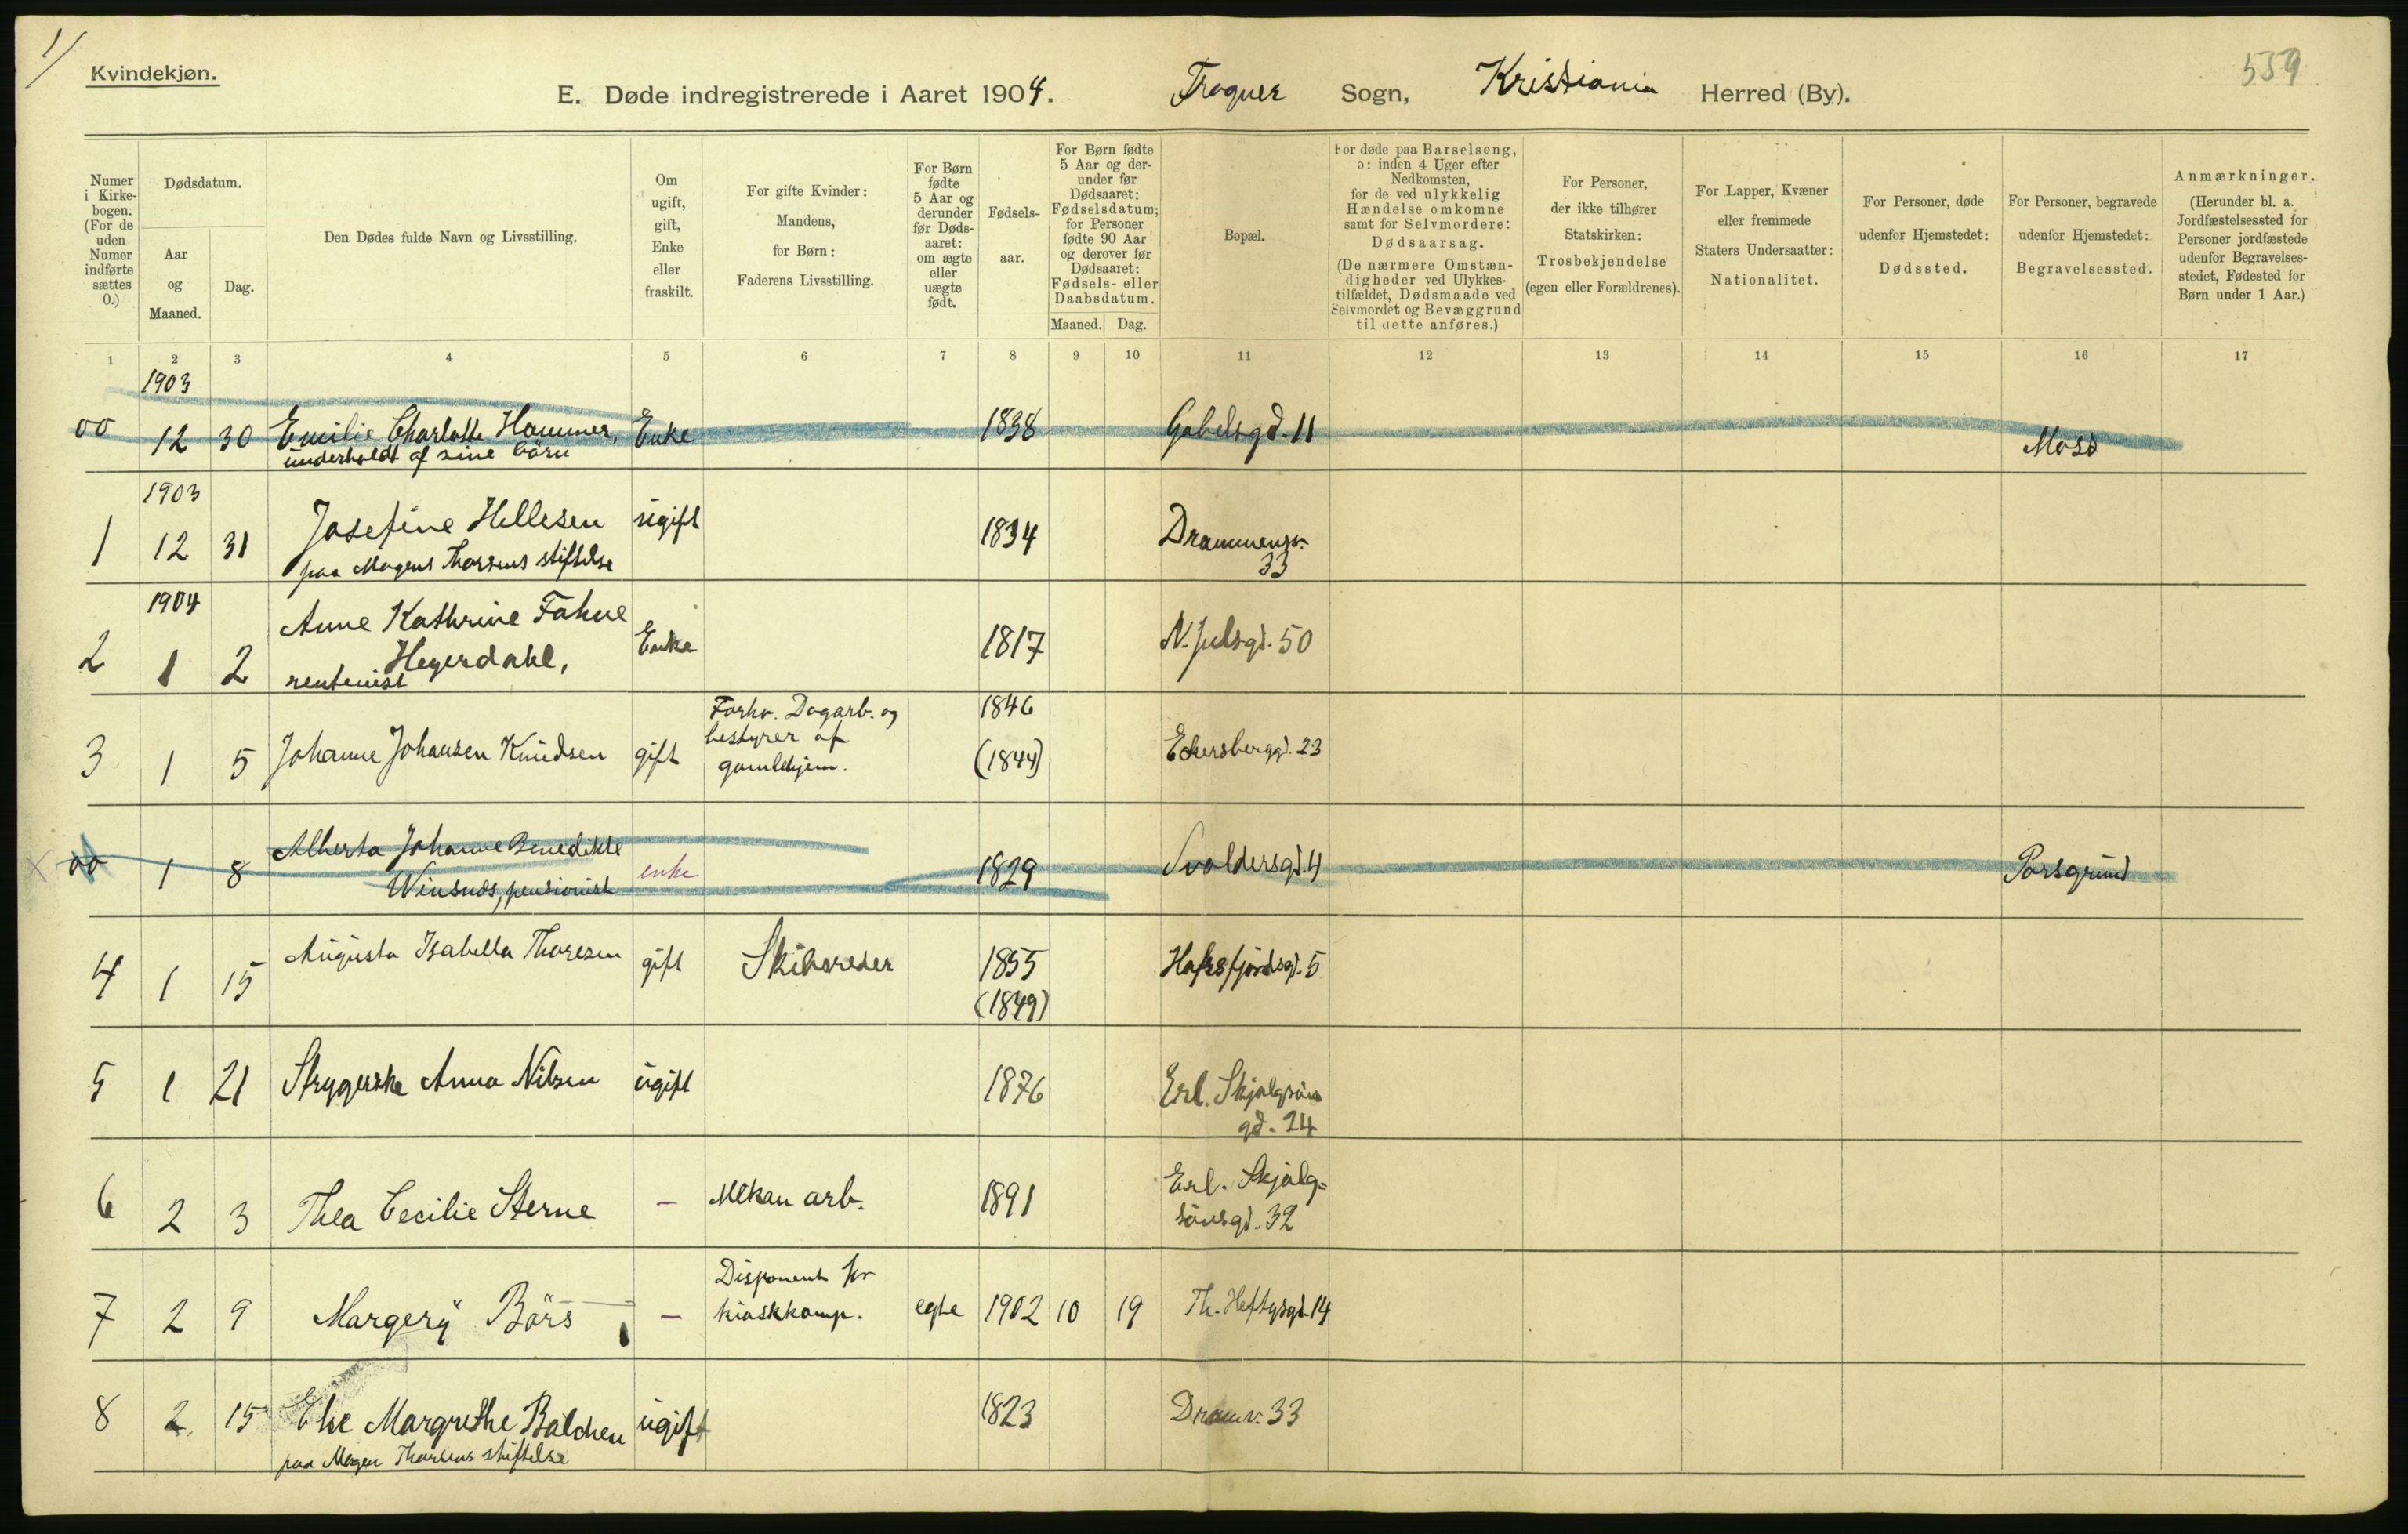 1/
Kvindekjøn.
559
E. Døde indregistrerede i Aaret 1904. Frogner Sogn, Kristiania Herred (By).
Numer i Kirkebogen. (For de uden Numer indførte sættes 0.)
Dødsdatum.
Aar og Maaned.
Dag.
Den Dødes fulde Navn og Livsstilling.
Om ugift, gift, Enke eller fraskilt.
For gifte Kvinder: Mandens, for Børn: Faderens Livsstilling.
For Børn fødte 5 Aar og derunder før Dødsaaret: om ægte eller uægte født.
Fødselsaar.
For Børn fødte 5 Aar og derunder før Dødsaaret: Fødselsdatum; for Personer fødte 90 Aar og derover før Dødsaaret: Fødsels- eller Daabsdatum.
Maaned. Dag.
Bopæl.
For døde paa Barselseng, ɔ: inden 4 Uger efter Nedkomsten, for de ved ulykkelig Hændelse omkomne samt for Selvmordere: Dødsaarsag. (De nærmere Omstændigheder ved Ulykkestilfældet, Dødsmaade ved Selvmordet og Bevæggrund til dette anføres.)
For Personer, der ikke tilhører Statskirken: Trosbekjendelse (egen eller Forældrenes).
For Lapper, Kvæner eller fremmede Staters Undersaatter: Nationalitet.
For Personer, døde udenfor Hjemstedet: Dødssted.
For Personer, begravede udenfor Hjemstedet: Begravelsessted.
Anmærkninger. (Herunder bl. a. Jordfæstelsessted for Personer jordfæstede udenfor Begravelsesstedet, Fødested for Børn under 1 Aar.)
1 2 3 4 5 6 7 8 9 10 11 12 13 14 15 16 17
1903
00 12 30 Emilie Charlotte Hammer, Enke 1838 Gabelsgd. 11 Moss
underholdt af sine börn
1903
1 12 31 Josefine Hellesen ugift 1834 Drammensv. 33
paa Magens Thorsens stiftelse
1904
2 1 2 Anne Kathrine Fahne Enke 1817 N. Julsgd. 50
Heyerdahl,
rentenist
3 1 5 Johanne Johansen Knudsen gift Forhv. Dagarb. og 1846 Eckersbergd. 23
bestyrer af
gamlehjem. (1844)
X 00 1 8 Alberta Johanne Benedikte enke 1829 Svoldersgd. 4 Porsgrund
Winsnes, pensionist
4 1 15 Augusta Isabella Thoresen gift Skibsreder 1855 Hafrsfjordsgd. 5
(1849)
5 1 21 Strygerske Anna Nilsen ugift 1876 Erl. Skjalgsöns
gd. 24
6 2 3 Thea Cecilie Sterne - Mekan arb. 1891 Erl. Skjalg=
sönsgd. 32
7 2 9 Margery Börs - Disponent for
kioskkomp. egte 1902 10 19 Th. Heftysgd. 14
8 2 15 Else Margrethe Balchen ugift 1823 Dramv. 33
paa Magen Thorsens stiftelse